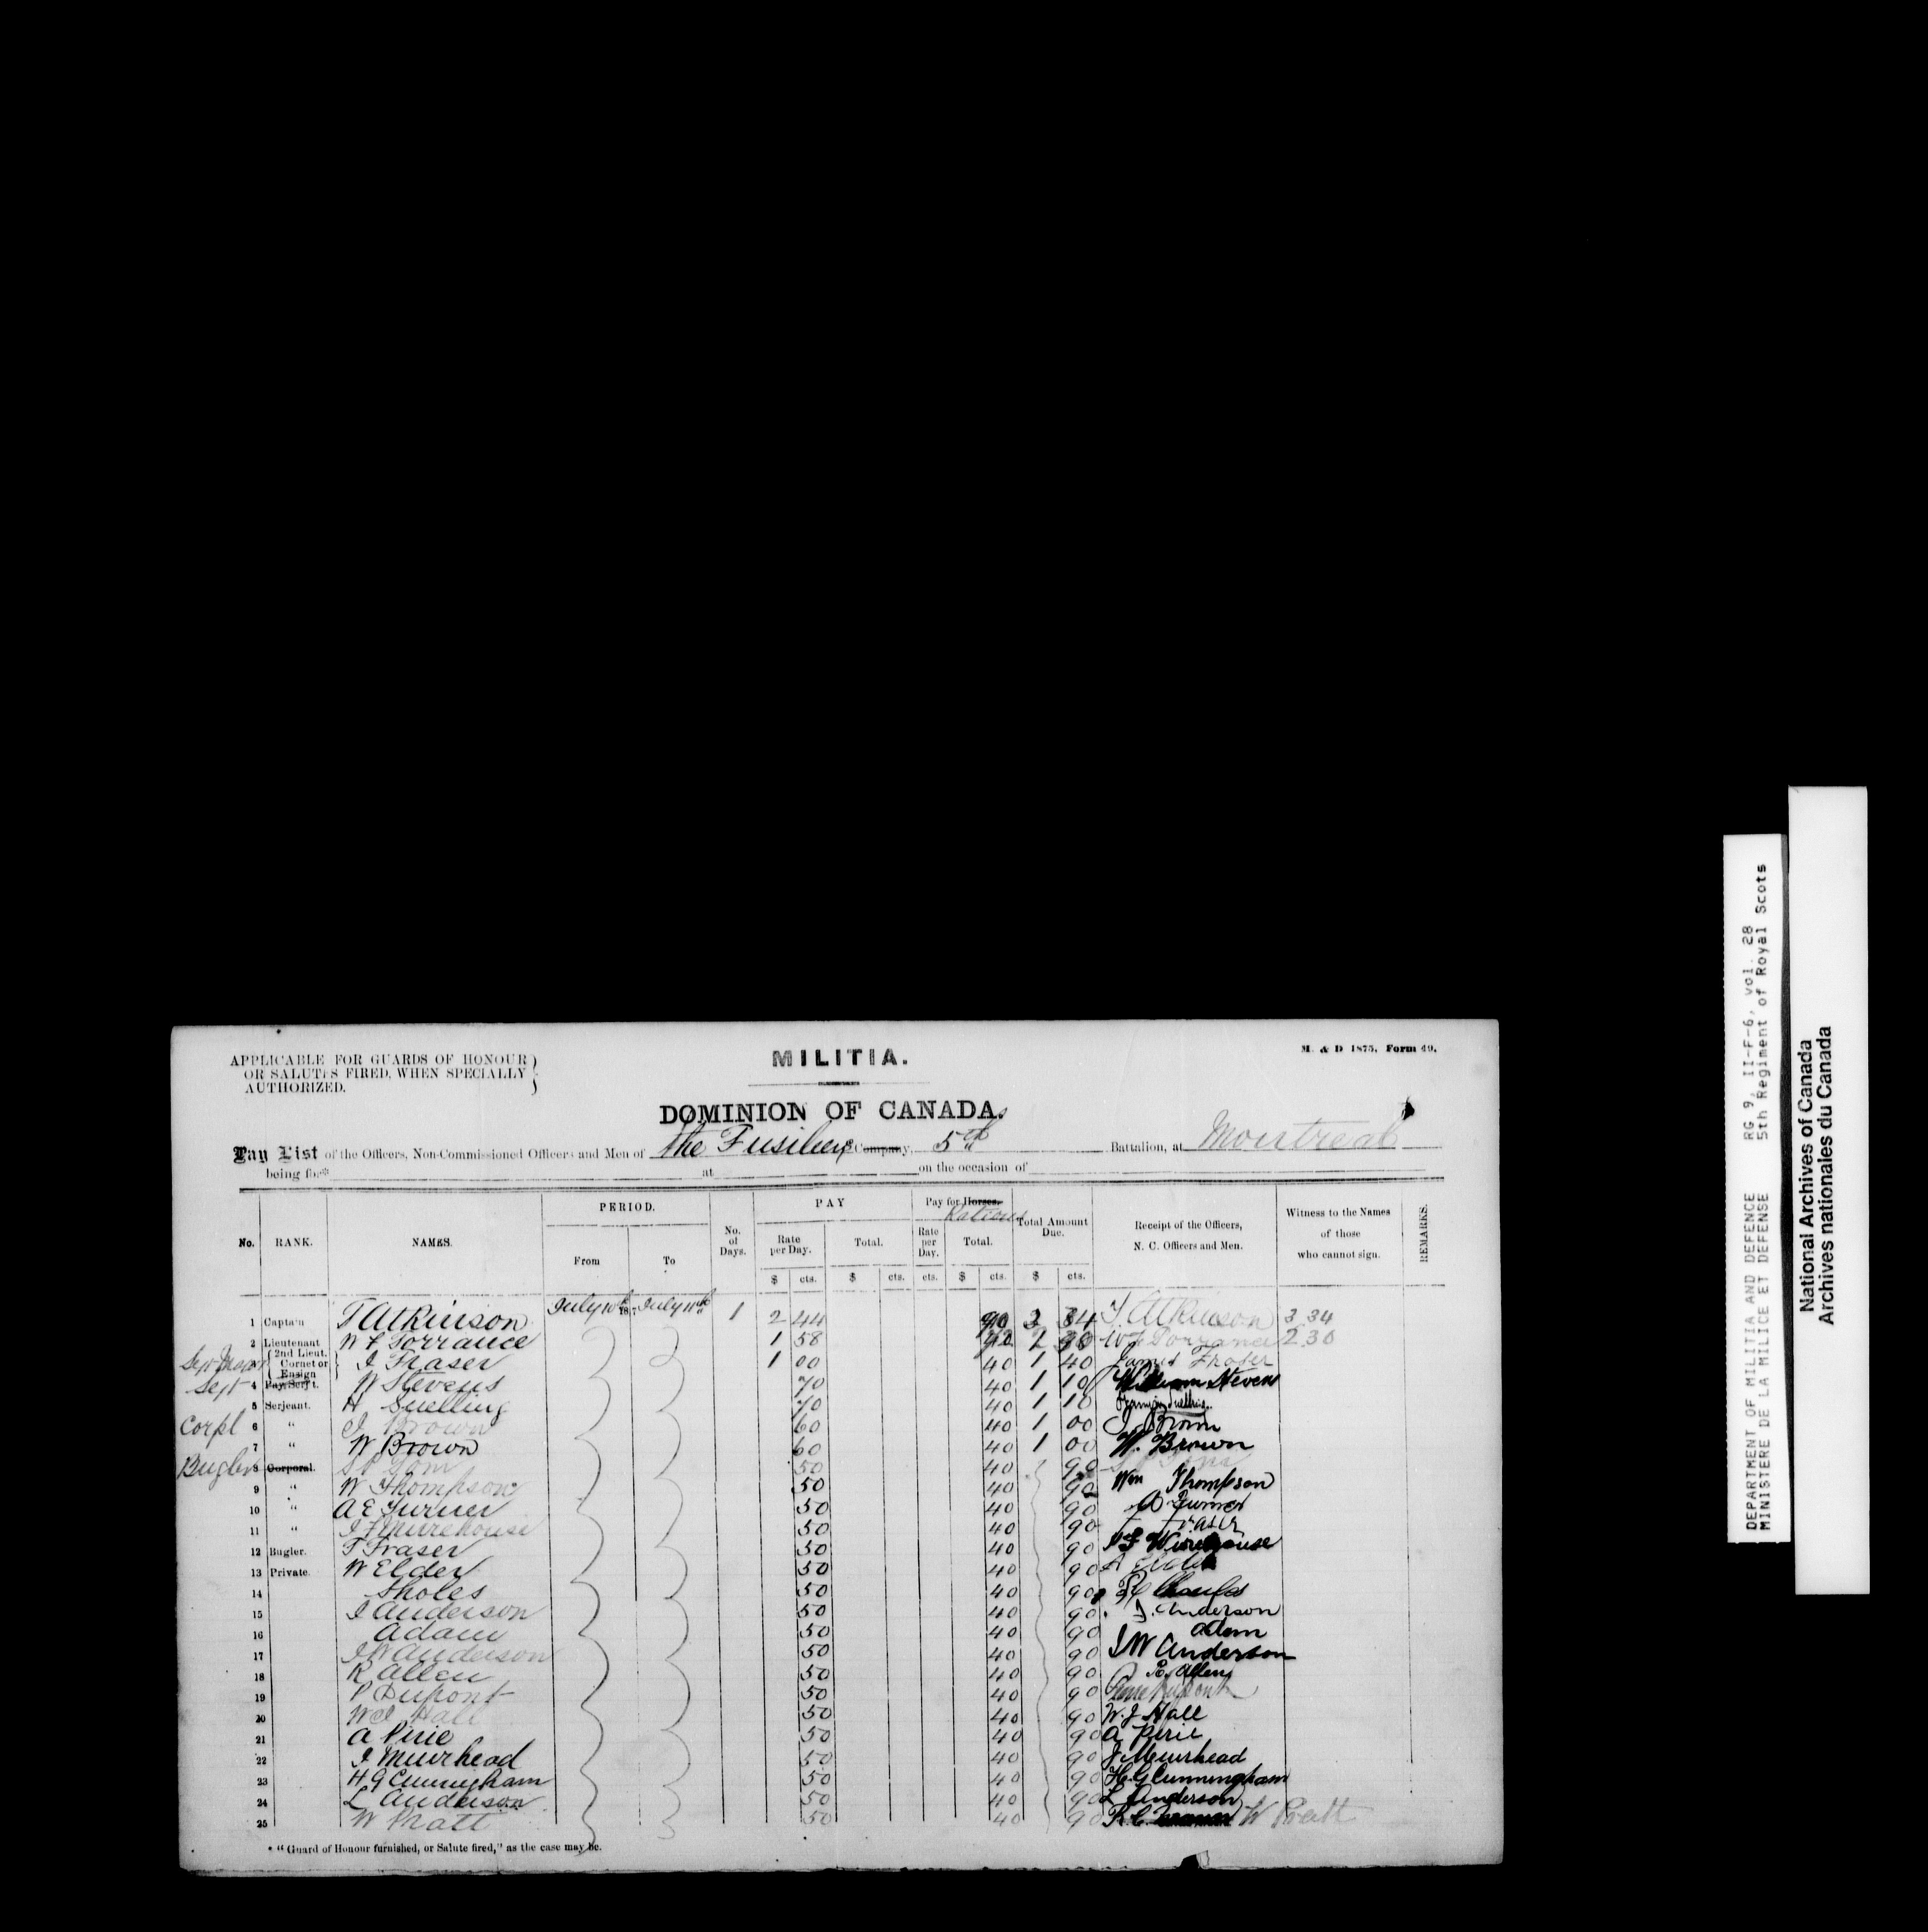 APPLICABLE FOR GUARDS OF HONOUR
OR SALUTES FIRED, WHEN SPECIALLY
AUTHORIZED.
MILITIA.
M. & D 1875. Form 49.
DOMINION OF CANADA.
Pay List of the Officers, Non-Commissioned Officers and Men of the Fusiliers Company, 5th Battalion, at Montreal
being for* at on the occasion of
No. RANK. NAMES. PERIOD. From To No. of Days. PAY Rate per Day. $ cts. Total. $ cts. Pay for Horses. Rations Rate per Day. cts. Total. $ cts. Total Amount Due. $ cts. Receipt of the Officers, N. C. Officers and Men. Witness to the Names of those who cannot sign. REMARKS.
1 Captain T Atkinson July 187 July 1 2 44 90 3 34 T. Atkinson 3 34
2 Lieutenant W F Torrance 1 58 2 Torrance 2 30
3 2nd Lieut. Cornet or Ensign J Fraser 1 00 40 1 40 James Fraser
Sergt 4 Pay Serj't. W Stevens 70 40 1 10 William Stevens
5 Serjeant. H Snelling 70 40 1 10 Snelling
Corpl 6 " J Brown 60 40 1 00 J Brown
7 " W Brown 60 40 1 00 W. Brown
Bugler 8 Corporal. 50 40 90
9 " W Thompson 50 40 90 Wm Thompson
10 " A E Turner 50 40 90 A Turner
11 " 50 40 90 Fraser
12 Bugler. T Fraser 50 40 90
13 Private. W Elder 50 40 90
14 Sholes 50 40 90
15 J Anderson 50 40 90 J. Anderson
16 Adam 50 40 90 Adam
17 J W Anderson 50 40 90 J W Anderson
18 R Allen 50 40 90 R. Allen
19 P Dupont 50 40 90 Dupont
20 W J Hall 50 40 90 W. J Hall
21 A Pirie 50 40 90 A Pirie
22 J Muirhead 50 40 90 J Muirhead
23 H G Cunningham 50 40 90 H. G Cunningham
24 L Anderson 50 40 90 L Anderson
25 W Pratt 50 40 90 W Pratt
* "Guard of Honour furnished, or Salute fired," as the case may be.
DEPARTMENT OF MILITIA AND DEFENCE RG 9, II-F-6, vol. 28
MINISTERE DE LA MILICE ET DEFENSE 5th Regiment of Royal Scots
National Archives of Canada
Archives nationales du Canada